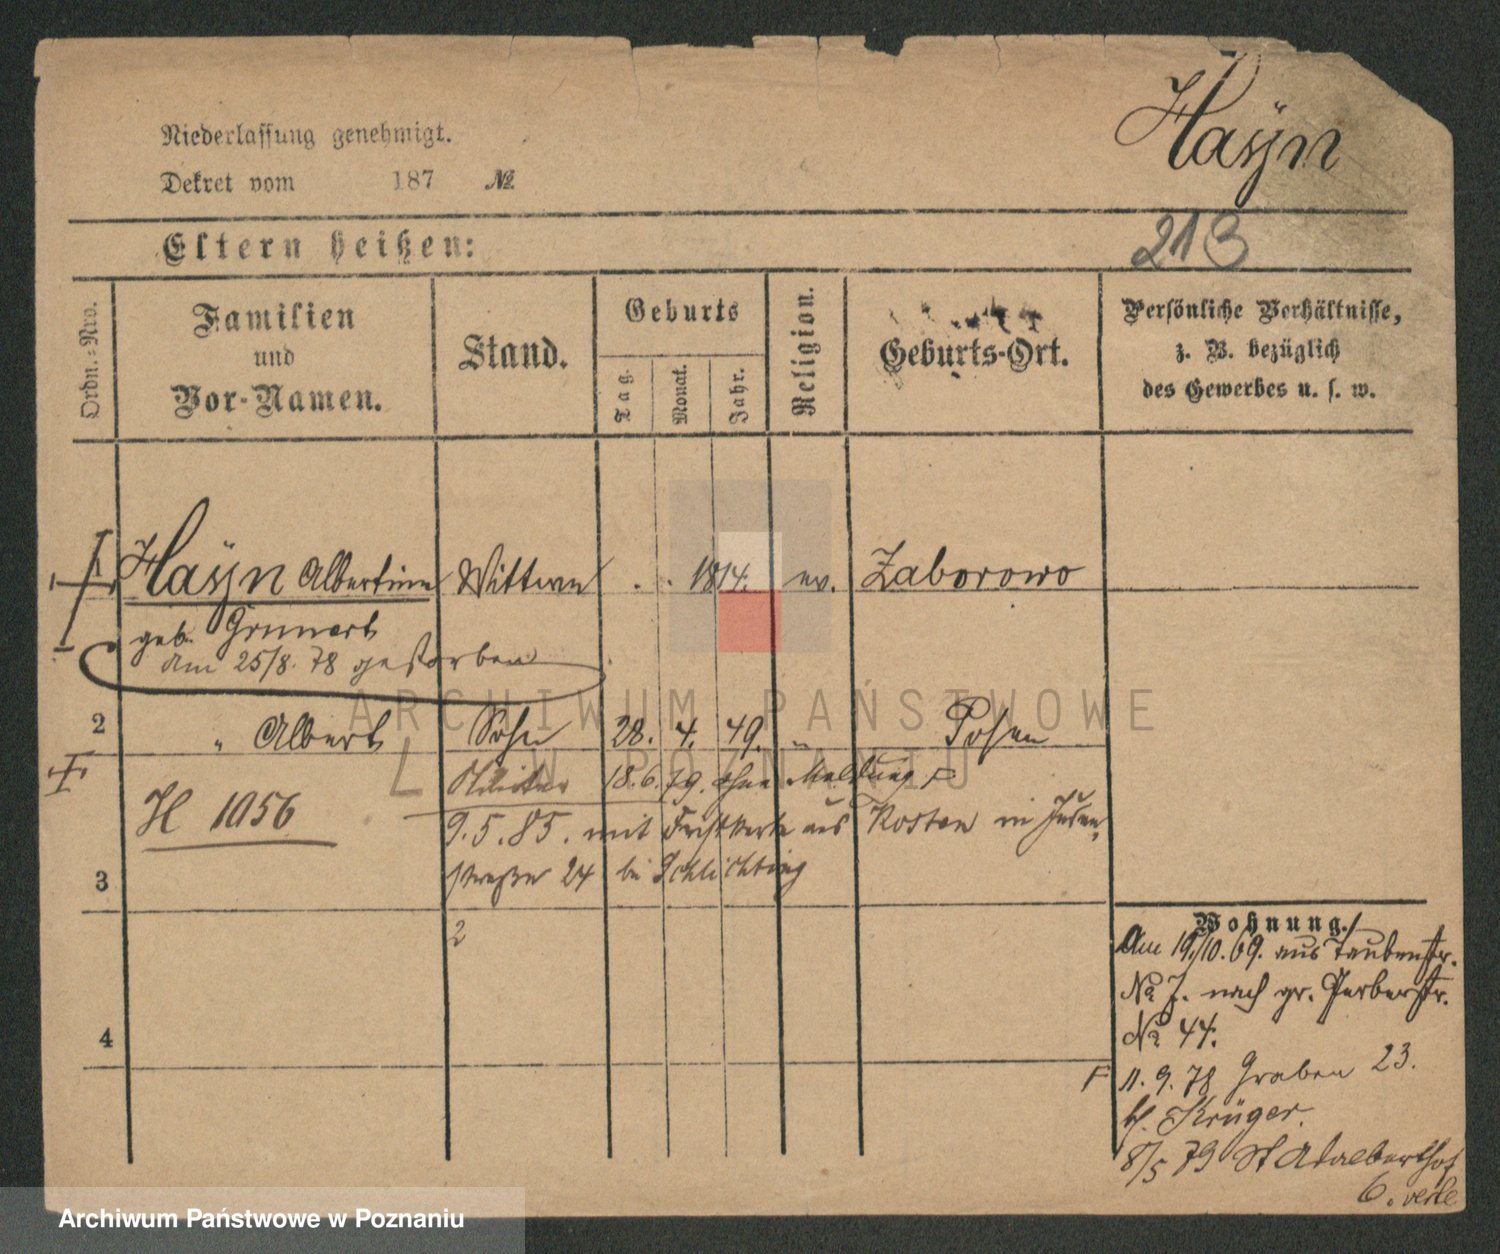 Niederlassung genehmigt.
Dekret vom 187 №
Hasÿn
213
Eltern heißen:
Ordn.=Nro.
Familien
und
Vor-Namen.
Stand.
Geburts
Tag.
Monat.
Jahr.
Religion.
Geburts-Ort.
Persönliche Verhältnisse,
z. B. bezüglich
des Gewerbes u. s. w.
Albertine Wittwe . . 1814. ev. Zaborowo
geb. Grunert
am 25/8. 78 gestorben
2 " Albert Sohn 28. 4. 49. " Posen
18.6.79. ohne Meldung F
H 1056
9.5.85. mit aus Kosten in
3 straße 24 bei Schlichting
2
4
Wohnung.
Am 19./10.69. aus Taubenstr.
№ 7. nach gr. Gerberstr.
№ 44.
F 11.9.78 Graben 23.
b. Krüger.
8/5 79 St Adalberthof
6.
ARCHIWUM PAŃSTWOWE
W POZNANIU
Archiwum Państwowe w Poznaniu